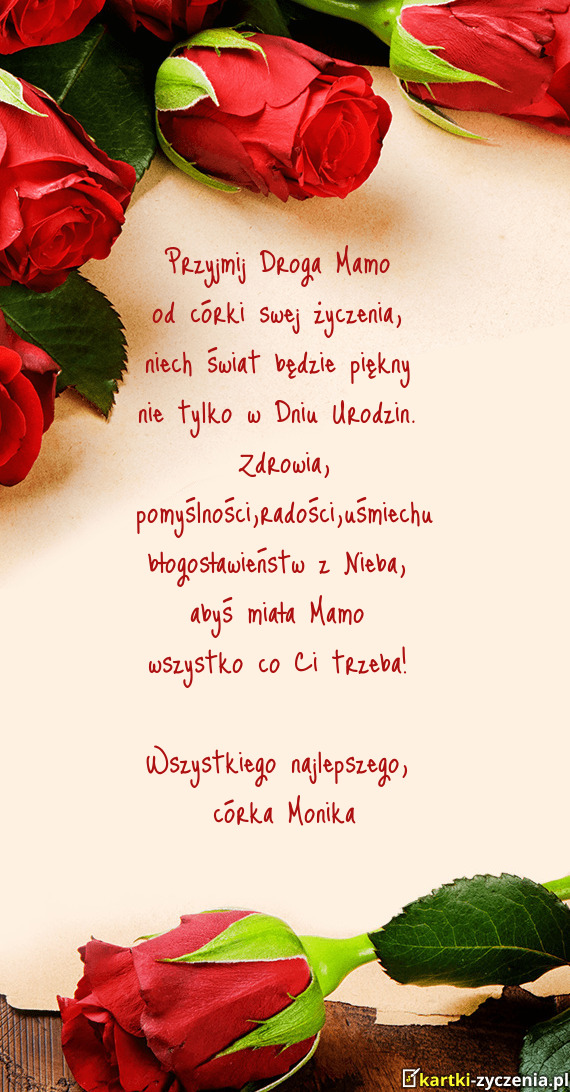 Przyjmij Droga Mamo
od córki swej życzenia,
niech świat będzie piękny
nie tylko w Dniu Urodzin.
Zdrowia,
pomyślności,radości,uśmiechu
błogosławieństw z Nieba,
abyś miała Mamo
wszystko co Ci trzeba!
Wszystkiego najlepszego,
córka Monika
kartki-zyczenia.pl